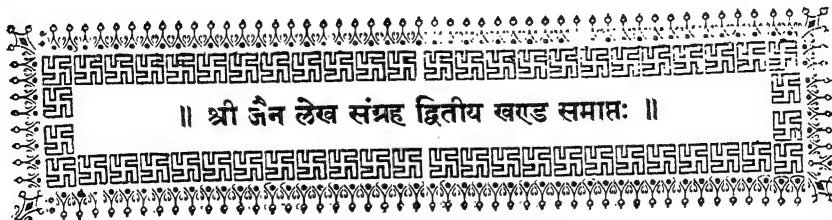 ॥ श्री जैन लेख संग्रह द्वितीय खण्ड समाप्तः ॥